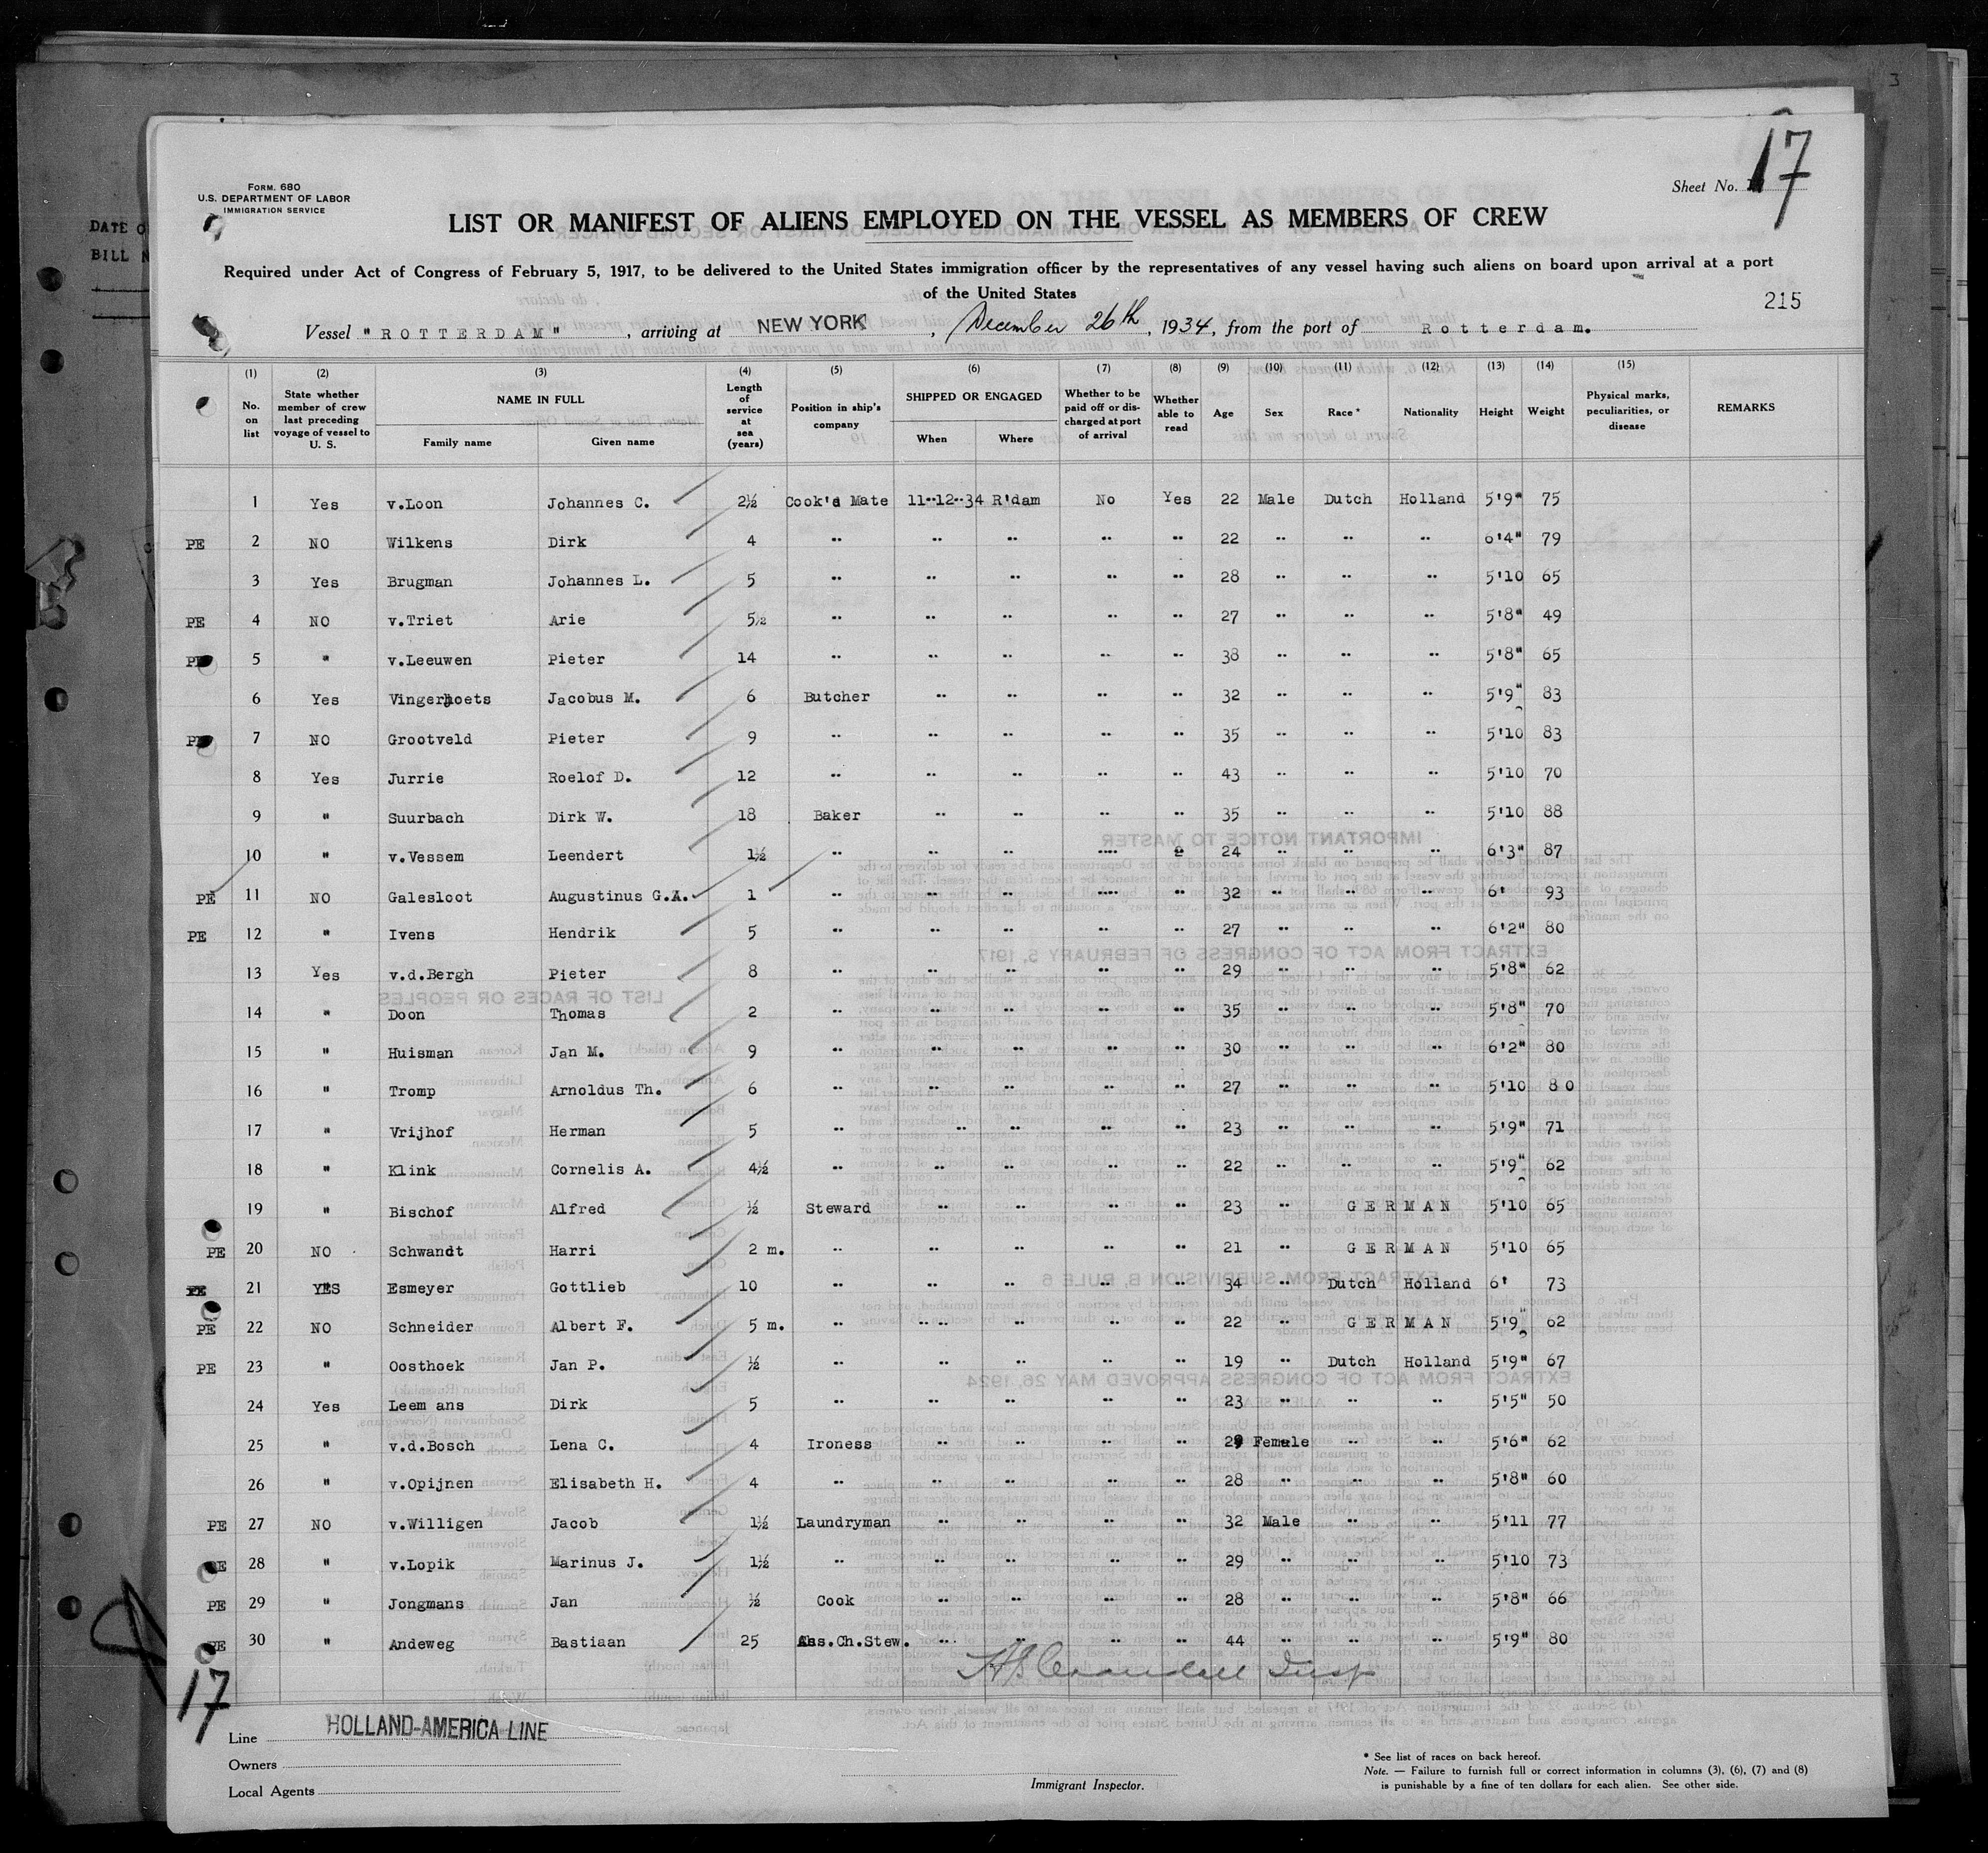 3
17
FORM. 680
U.S. DEPARTMENT OF LABOR
IMMIGRATION SERVICE
Sheet No.
DATE O
BILL N
LIST OR MANIFEST OF ALIENS EMPLOYED ON THE VESSEL AS MEMBERS OF CREW
Required under Act of Congress of February 5, 1917, to be delivered to the United States immigration officer by the representatives of any vessel having such aliens on board upon arrival at a port
of the United States
215
Vessel "ROTTERDAM", arriving at NEW YORK, December 26th, 1934, from the port of Rotterdam.
(1) (2) (3) (4) (5) (6) (7) (8) (9) (10) (11) (12) (13) (14) (15)
No. on list | State whether member of crew last preceding voyage of vessel to U. S. | NAME IN FULL | Family name | Given name | Length of service at sea (years) | Position in ship's company | SHIPPED OR ENGAGED | When | Where | Whether to be paid off or discharged at port of arrival | Whether able to read | Age | Sex | Race * | Nationality | Height | Weight | Physical marks, peculiarities, or disease | REMARKS
1 Yes v.Loon Johannes C. 2½ Cook'd Mate 11-12-34 R'dam No Yes 22 Male Dutch Holland 5'9" 75
PE 2 NO Wilkens Dirk 4 " " " " " 22 " " " 6'4" 79
3 Yes Brugman Johannes L. 5 " " " " " 28 " " " 5'10 65
PE 4 NO v.Triet Arie 5½ " " " " " 27 " " " 5'8" 49
PE 5 " v.Leeuwen Pieter 14 " " " " " 38 " " " 5'8" 65
6 Yes Vingerhoets Jacobus M. 6 Butcher " " " " 32 " " " 5'9" 83
PE 7 NO Grootveld Pieter 9 " " " " " 35 " " " 5'10 83
8 Yes Jurrie Roelof D. 12 " " " " " 43 " " " 5'10 70
9 " Suurbach Dirk W. 18 Baker " " " " 35 " " " 5'10 88
10 " v.Vessem Leendert 1½ " " " " " 24 " " " 6'3" 87
PE 11 NO Galesloot Augustinus G.A. 1 " " " " " 32 " " " 6' 93
PE 12 " Ivens Hendrik 5 " " " " " 27 " " " 6'2" 80
13 Yes v.d.Bergh Pieter 8 " " " " " 29 " " " 5'8" 62
14 " Doon Thomas 2 " " " " " 35 " " " 5'8" 70
15 " Huisman Jan M. 9 " " " " " 30 " " " 6'2" 80
16 " Tromp Arnoldus Th. 6 " " " " " 27 " " " 5'10 80
17 " Vrijhof Herman 5 " " " " " 23 " " " 5'9" 71
18 " Klink Cornelis A. 4½ " " " " " 22 " " " 5'9" 62
19 " Bischof Alfred ½ Steward " " " " 23 " GERMAN 5'10 65
PE 20 NO Schwandt Harri 2 m. " " " " " 21 " GERMAN 5'10 65
PE 21 YES Esmeyer Gottlieb 10 " " " " " 34 " Dutch Holland 6' 73
PE 22 NO Schneider Albert F. 5 m. " " " " " 22 " GERMAN 5'9" 62
PE 23 " Oosthoek Jan P. ½ " " " " " 19 " Dutch Holland 5'9" 67
24 Yes Leem ans Dirk 5 " " " " " 23 " " " 5'5" 50
25 " v.d.Bosch Lena C. 4 Ironess " " " " 29 Female " " 5'6" 62
26 " v.Opijnen Elisabeth H. 4 " " " " " 28 " " " 5'8" 60
PE 27 NO v.Willigen Jacob 1½ Laundryman " " " " 32 Male " " 5'11 77
PE 28 " v.Lopik Marinus J. 1½ " " " " " 29 " " " 5'10 73
PE 29 " Jongmans Jan ½ Cook " " " " 28 " " " 5'8" 66
PE 30 " Andeweg Bastiaan 25 Ass.Ch.Stew. " " " " 44 " " " 5'9" 80
17
Line HOLLAND-AMERICA LINE
Owners
Local Agents
Immigrant Inspector.
* See list of races on back hereof.
Note. — Failure to furnish full or correct information in columns (3), (6), (7) and (8)
is punishable by a fine of ten dollars for each alien. See other side.